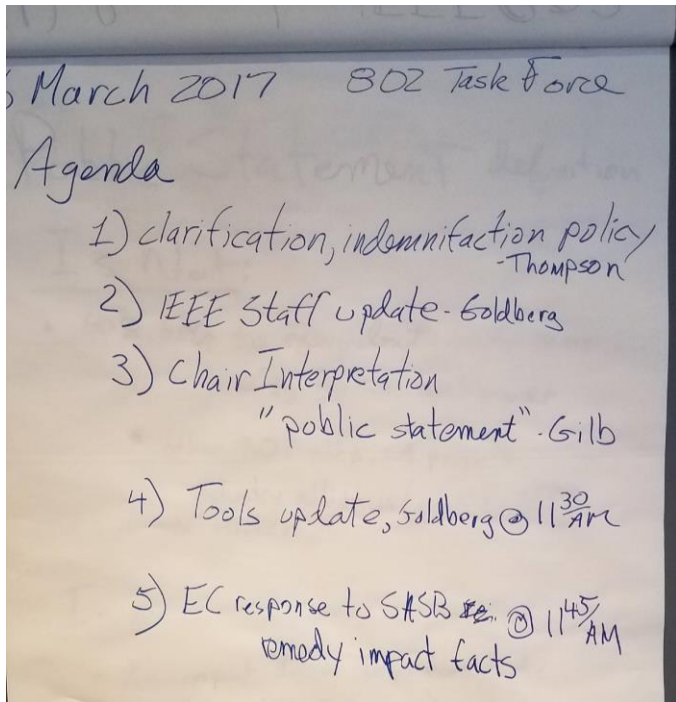 March 2017 802 Task Force
Agenda
1) clarification, indemnifaction policy
-Thompson
2) IEEE Staff update - Goldberg
3) Chair Interpretation
"public statement" - Gilb
4) Tools update, Goldberg @ 11 30/AM
5) EC response to SASB @ 11 45/AM
remedy impact facts